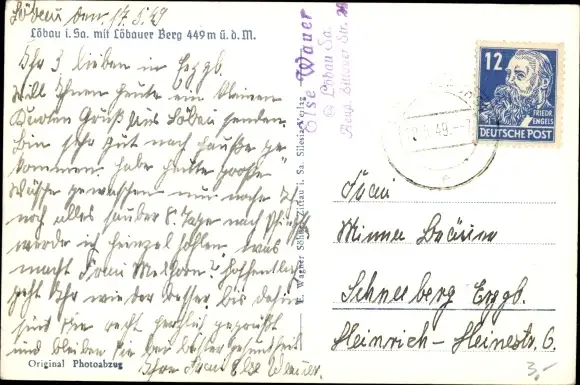 Löbau den. 17.5.49
Löbau i. Sa. mit Löbauer Berg 449 m ü. d. M.
Ihr 3 lieben in Erzgb.
Will Ihnen heute ein kleinen
Karten Gruß aus Löbau senden.
bin sehr gut nach Hause ge-
kommen. habe heute große
Wäsche gewaschen nun
noch alles sauber 8. Tage nach
werde ich
macht Frau hoffentlich
geht Ihr wieder besser bis dahin
sind Sie recht herzlich gegrüßt
und bleiben Sie bei bester gesundheit
Ihre Frau Else Wauer.
Original Photoabzug
E. Wagner Söhne, Zittau i. Sa. Silesia-Verlag
Else Wauer
Löbau Sa.
Äeuß. Zittauer Str.
12
FRIEDR.
ENGELS
DEUTSCHE POST
49
Frau
Minna Bräuer
Schneeberg Erzgb.
Heinrich-Heinestr. 6.
3,-